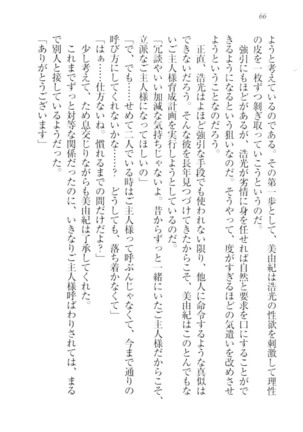 66
ようと考えているのである。その第一歩として、美由紀は浩光の性欲を刺激して理性
の皮を一枚ずつ剝ぎ取っていこうというのだ。
強引にもほどがあるが、浩光が劣情に身を任せれば自然と要求を口にすることがで
きるようになるという狙いなのだ。そうやって、度がすぎるほどの気遣いを改めさせ
ようということなのだろう。
正直、浩光はよほど強引な手段でも使われない限り、他人に命令するような真似は
できないだろう。そんな彼を長年見つづけてきたからこそ、美由紀はこのとんでもな
いご主人様育成計画を実行しようとしているのだ。
冗談やいい加減な気持ちじゃない。昔からずっと一緒にいたご主人様だからこそ、
立派なご主人様になってほしいの」
「で、でも……せめて二人でいる時はご主人様って呼ぶんじゃなくて、今まで通りの
呼び方にしてくれないかな……？　どうしても、落ち着かなくて」
「はぁ……仕方ないね。慣れるまでの間だけだよ？」
少し考えて、ため息交じりながらも美由紀は了承してくれた。
これまでずっと対等な関係だったのに、いきなりご主人様呼ばわりされては、まる
で別人と接しているようだった。
「ありがとうございます」